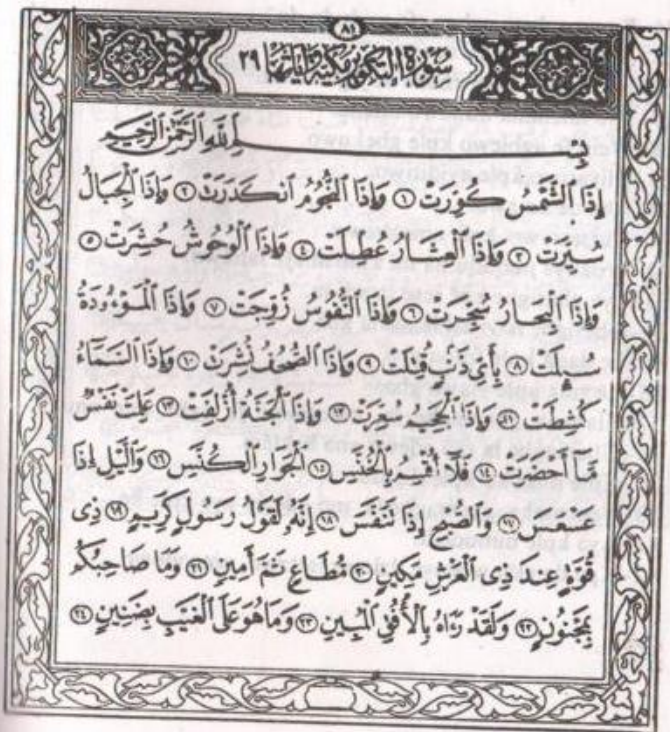 ٨١
سورة التكوير مكية وآياتها ٢٩
بِسْمِ اللَّهِ الرَّحْمَٰنِ الرَّحِيمِ
إِذَا الشَّمْسُ كُوِّرَتْ ١ وَإِذَا النُّجُومُ انكَدَرَتْ ٢ وَإِذَا الْجِبَالُ
سُيِّرَتْ ٣ وَإِذَا الْعِشَارُ عُطِّلَتْ ٤ وَإِذَا الْوُحُوشُ حُشِرَتْ ٥
وَإِذَا الْبِحَارُ سُجِّرَتْ ٦ وَإِذَا النُّفُوسُ زُوِّجَتْ ٧ وَإِذَا الْمَوْءُودَةُ
سُئِلَتْ ٨ بِأَيِّ ذَنبٍ قُتِلَتْ ٩ وَإِذَا الصُّحُفُ نُشِرَتْ ١٠ وَإِذَا السَّمَاءُ
كُشِطَتْ ١١ وَإِذَا الْجَحِيمُ سُعِّرَتْ ١٢ وَإِذَا الْجَنَّةُ أُزْلِفَتْ ١٣ عَلِمَتْ نَفْسٌ
مَّا أَحْضَرَتْ ١٤ فَلَا أُقْسِمُ بِالْخُنَّسِ ١٥ الْجَوَارِ الْكُنَّسِ ١٦ وَاللَّيْلِ إِذَا
عَسْعَسَ ١٧ وَالصُّبْحِ إِذَا تَنَفَّسَ ١٨ إِنَّهُ لَقَوْلُ رَسُولٍ كَرِيمٍ ١٩ ذِي
قُوَّةٍ عِندَ ذِي الْعَرْشِ مَكِينٍ ٢٠ مُّطَاعٍ ثَمَّ أَمِينٍ ٢١ وَمَا صَاحِبُكُم
بِمَجْنُونٍ ٢٢ وَلَقَدْ رَءَاهُ بِالْأُفُقِ الْمُبِينِ ٢٣ وَمَا هُوَ عَلَى الْغَيْبِ بِضَنِينٍ ٢٤